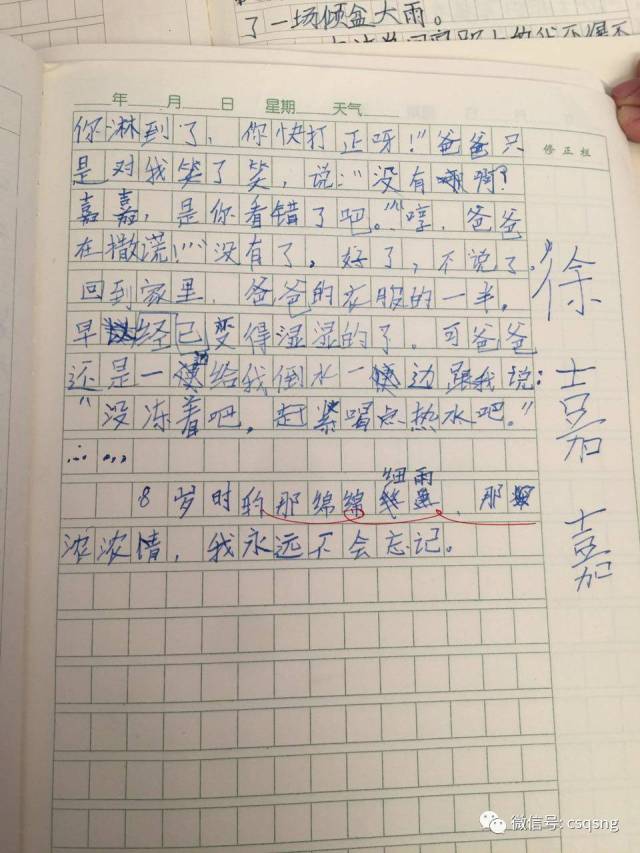 了一场倾盆大雨。
年 月 日 星期 天气
修正栏
你淋到了，你快打正呀！”爸爸只
是对我笑了笑，说：“没有啊？
嘉嘉，是你看错了吧。”“哼，爸爸
在撒谎！”“没有了，好了，不说了。”
回到家里，爸爸的衣服的一半，
早经已变得湿湿的了。可爸爸
还是一边给我倒水一边跟我说：
“没冻着吧，赶紧喝点热水吧。”
……
8岁时那绵绵细雨，那
浓浓情，我永远不会忘记。
徐嘉嘉
微信号: csqsng